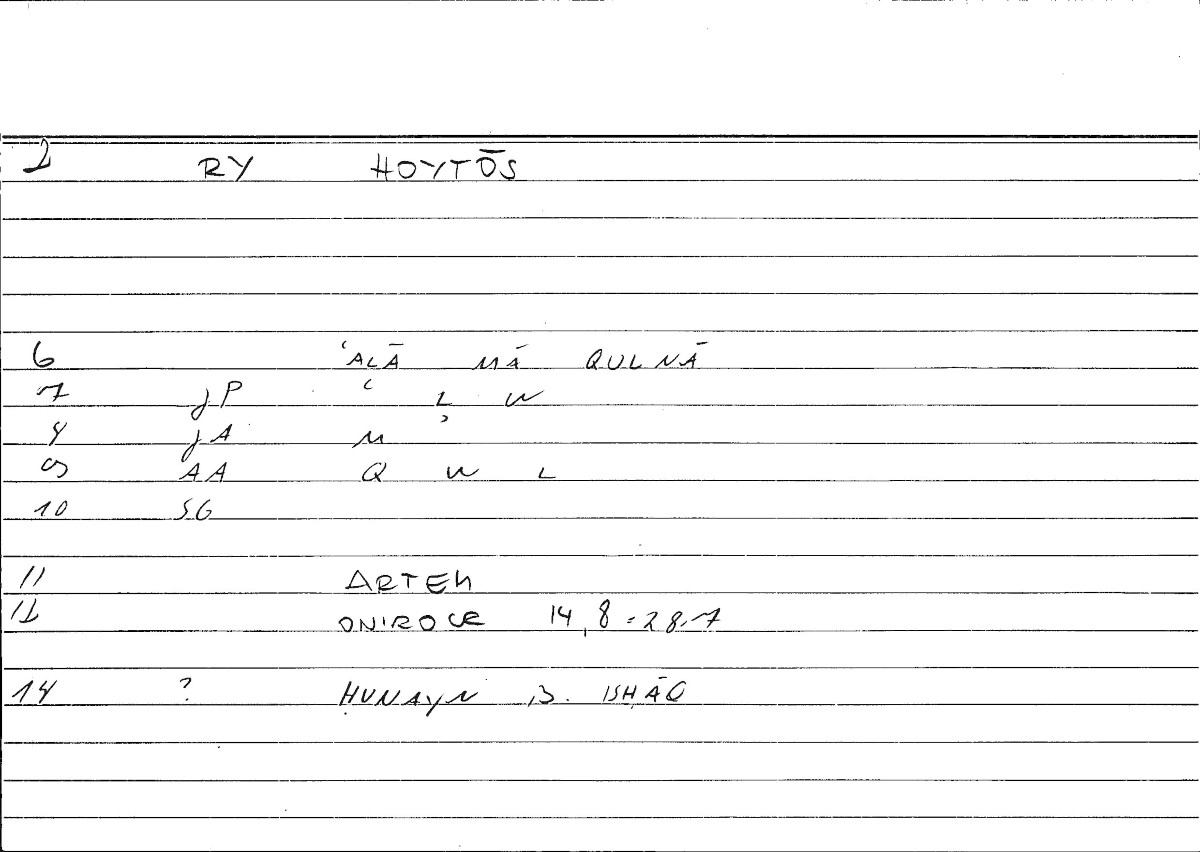 2 RY HOYTŌS
6 ʿALĀ MĀ QULNĀ
7 JP ʿ L W
8 JA M ʾ
9 AA Q W L
10 SG
11 ARTEM
12 ONIROCR 14,8 = 28.7
14 ? ḤUNAYN B. ISḤĀQ